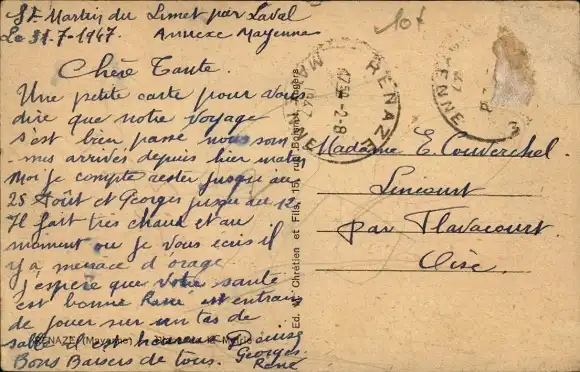 St Martin du Limet par Laval
Le 31-7-1947. Annexe Mayenne
Chère Tante.
Une petite carte pour vous
dire que notre voyage
s'est bien passé nous som
mes arrivés depuis hier matin
Moi je compte rester jusqu'au
25 Août et Georges jusqu'au 12.
Il fait très chaud et au
moment ou je vous ecris il
y a menace d'orage
J'espère que votre santé
est bonne René est entrain
de jouer sur un tas de
sable il est heureux Denise
Bons Baisers de tous. Georges
René
10f
RENAZE
17 30
2-8
1947
MAYENNE
Madame E. Couverchel.
Lincourt
par Flavacourt
Oise.
Ed. Chrétien et Fils, 15, rue
RENAZÉ (Mayenne)